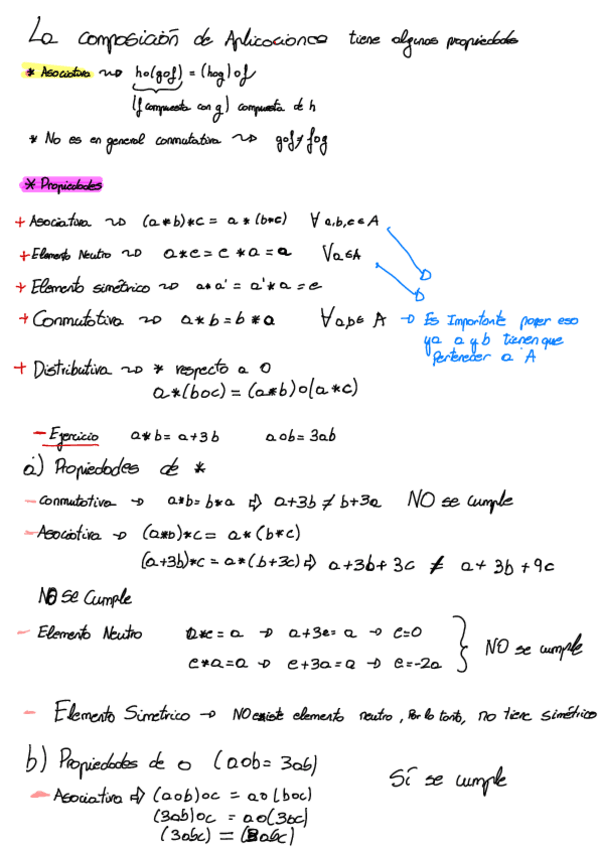 La composición de Aplicaciones tiene algunas propiedades
* Asociativa ⇝ ho(gof) = (hog)of
(f compuesta con g) compuesta de h
* No es en general conmutativa ⇝ gof ≠ fog
* Propiedades
+ Asociativa ⇝ (a*b)*c = a*(b*c) ∀a,b,c∈A
+ Elemento Neutro ⇝ a*e = e*a = a ∀a∈A
+ Elemento simétrico ⇝ a*a' = a'*a = e
+ Conmutativa ⇝ a*b = b*a ∀a,b∈A → Es Importante poner eso
ya a y b tienen que
pertenecer a A
+ Distributiva ⇝ * respecto a o
a*(boc) = (a*b)o(a*c)
- Ejercicio a*b = a+3b aob = 3ab
a) Propiedades de *
- Conmutativa → a*b = b*a ⇨ a+3b ≠ b+3a NO se cumple
- Asociativa → (a*b)*c = a*(b*c)
(a+3b)*c = a*(b+3c) ⇨ a+3b+3c ≠ a+3b+9c
NO se cumple
- Elemento Neutro a*e = a → a+3e = a → e=0
e*a = a → e+3a = a → e=-2a
NO se cumple
- Elemento Simetrico → NO existe elemento neutro, Por lo tanto, no tiene simétrico
b) Propiedades de o (aob = 3ab)
- Asociativa ⇨ (aob)oc = ao(boc) Sí se cumple
(3ab)oc = ao(3bc)
(3abc) = (3abc)